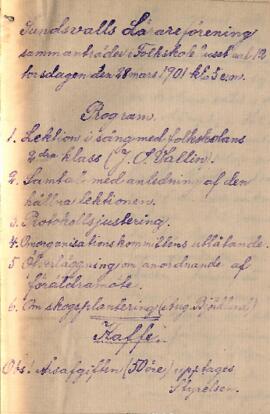 Sundsvalls Lärareförening
sammanträder i Folkskole huset
torsdagen den 28 mars 1901 kl. 5 e.m.
Program.
1. Lektion i sång med folkskolans
2dra klass (J. A. Vallin).
2. Samtal med anledning af den
hållna lektionen.
3. Protokollsjustering.
4. Omorganisationskommitténs utlåtande.
5. Öfverläggning om anordnande af
föräldramöte.
6. Om skogsplantering (Aug.
Kaffe.
Obs! Årsafgiften (50 öre) upptages
Styrelsen.